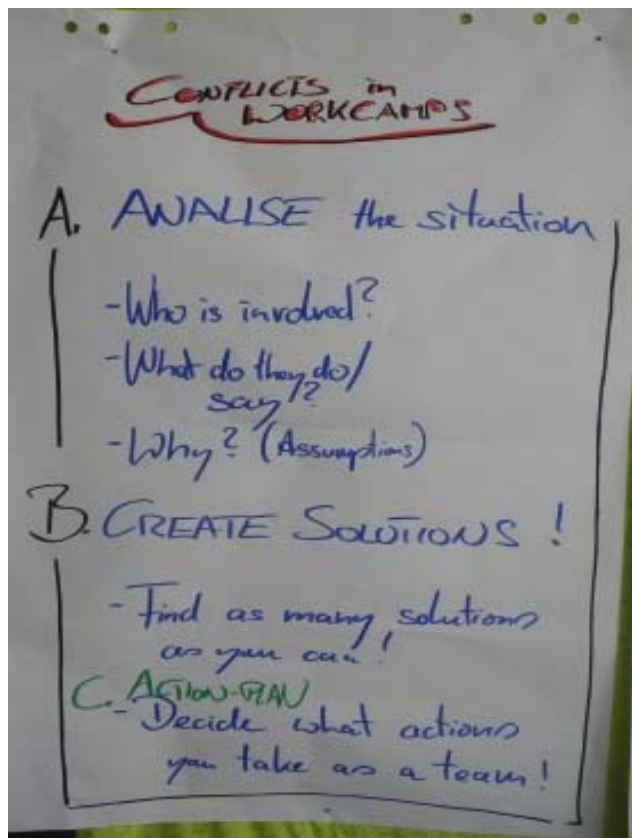 CONFLICTS in
WORKCAMPS
A. ANALISE the situation
- Who is involved?
- What do they do/
say?
- Why? (Assumptions)
B. CREATE SOLUTIONS!
- Find as many solutions
as you can!
C. ACTION-PLAN
- Decide what actions
you take as a team!